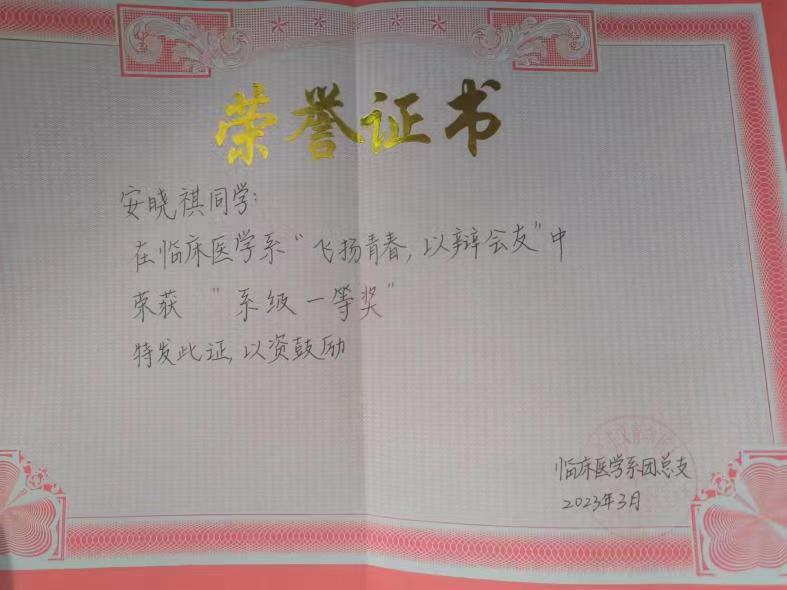 荣誉证书
安晓祺同学:
在临床医学系“飞扬青春,以辩会友”中
荣获 “系级一等奖”
特发此证,以资鼓励
临床医学系团总支
2023年3月